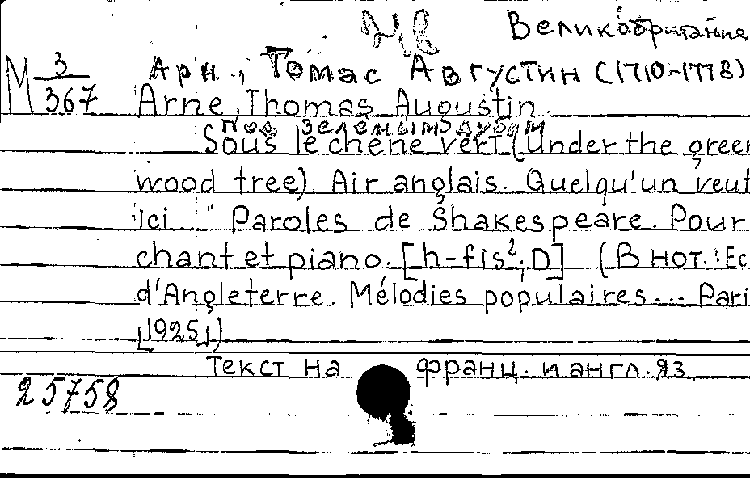 Великобритание
М 3/367 Арн, Томас Августин (1710-1778)
Arne, Thomas Augustin.
под зеленым дубом
Sous le chêne vert (Under the green
wood tree). Air anglais. Quelqu'un veut
ici..." Paroles de Shakespeare. Pour
chant et piano. [h-fis²; D] (В нот.: Ec
d'Angleterre. Mélodies populaires... Pari
[1925])
Текст на франц. и англ. яз.
25758